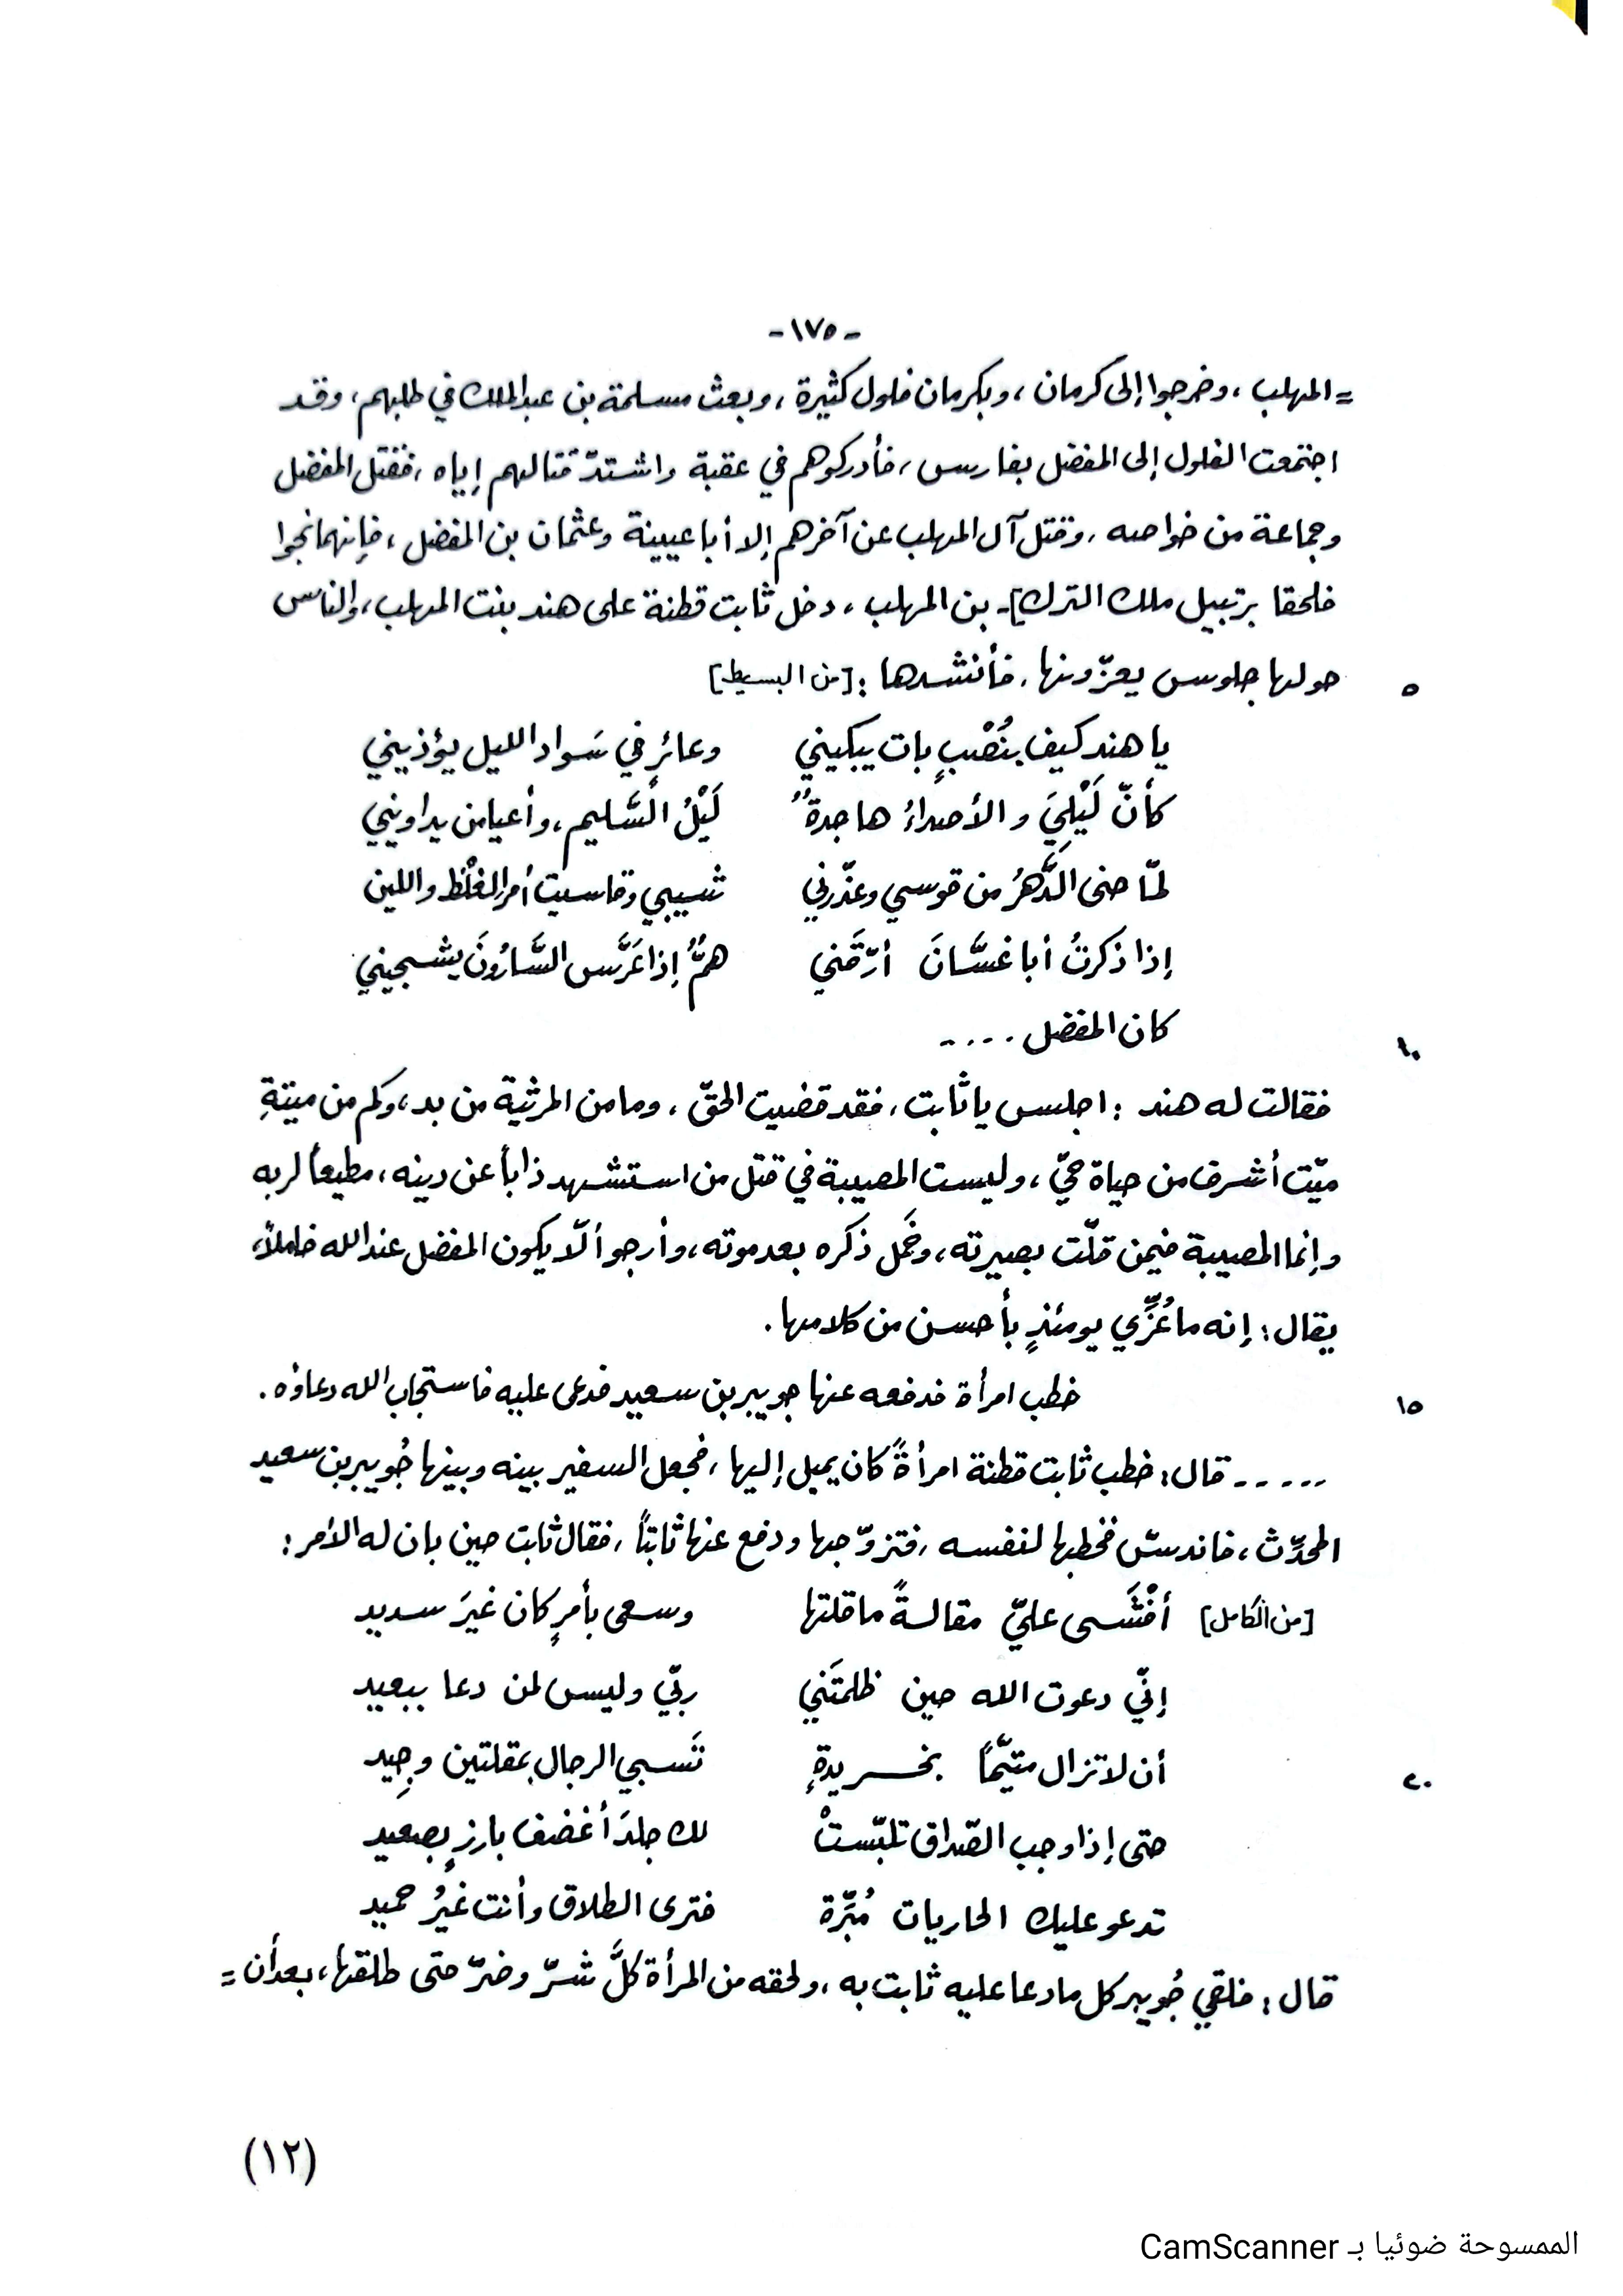 -١٧٥-
= المهلب، وخرجوا إلى كرمان، وبكرمان فلول كثيرة، وبعث مسلمة بن عبد الملك في طلبهم، وقد
اجتمعت الفلول إلى المفضل بفارس، فأدركوهم في عقبة واشتدّ قتالهم إياه، فقتل المفضل
وجماعة من خواصه، وقتل آل المهلب عن آخرهم إلا أبا عيينة وعثمان بن المفضل، فإنهما نجوا
فلحقا برتبيل ملك الترك]ـ بن المهلب، دخل ثابت قطنة على هند بنت المهلب، والناس
٥ حولها جلوس يعزّونها، فأنشدها: [من البسيط]
يا هند كيف بنُصْبٍ بات يبكيني وعائرٍ في سَواد الليل يؤذيني
كأنّ لَيْلِيَ والأصداءُ هاجدةٌ لَيْلُ السَّليم، وأعيا من يداويني
لمّا حنى الدَّهرُ من قوسي وعذّرني شيبي وقاسيت أمر الغلْظ واللين
إذا ذكرتُ أبا غسَّانَ أرّقَني همٌّ إذا عَرَّس السَّارُونَ يشجيني
١٠ كان المفضل ....
فقالت له هند: اجلس يا ثابت، فقد قضيت الحقّ، وما من المرثية من بد، وكم من ميتةِ
ميّت أشرف من حياة حيّ، وليست المصيبة في قتل من استشهد ذاباً عن دينه، مطيعاً لربه
وإنما المصيبة فيمن قلّت بصيرته، وخَمل ذكره بعد موته، وأرجو ألّا يكون المفضل عند الله خاملاً،
يقال: إنه ما عُزِّي يومئذٍ بأحسن من كلامها.
١٥ خطب امرأة فدفعه عنها جويبر بن سعيد فدعى عليه فاستجاب الله دعاؤه.
..... قال: خطب ثابت قطنة امرأةً كان يميل إليها، فجعل السفير بينه وبينها جُويبر بن سعيد
المحدِّث، فاندسّ فخطبها لنفسه، فتزوّجها ودفع عنها ثابتاً، فقال ثابت حين بان له الأمر:
[من الكامل] أفْشَى عليّ مقالةً ما قلتها وسعى بأمرٍ كان غيرَ سديد
إنّي دعوت الله حين ظلمتَني ربّي وليس لمن دعا ببعيد
٢٠ أن لا تزال متيّماً بخريدةٍ تَسبي الرجال بمقلتين وجِيد
حتى إذا وجب الصّداق تلبّستْ لك جلدَ أغضف بارزٍ بصعيد
تدعو عليك الحاريات مُبَّرة فترى الطلاق وأنت غيرُ حميد
قال: فلقي جُويبر كل ما دعا عليه ثابت به، ولحقه من المرأة كلَّ شرّ وضرّ حتى طلقها، بعد أن =
(١٢)
الممسوحة ضوئيا بـ CamScanner